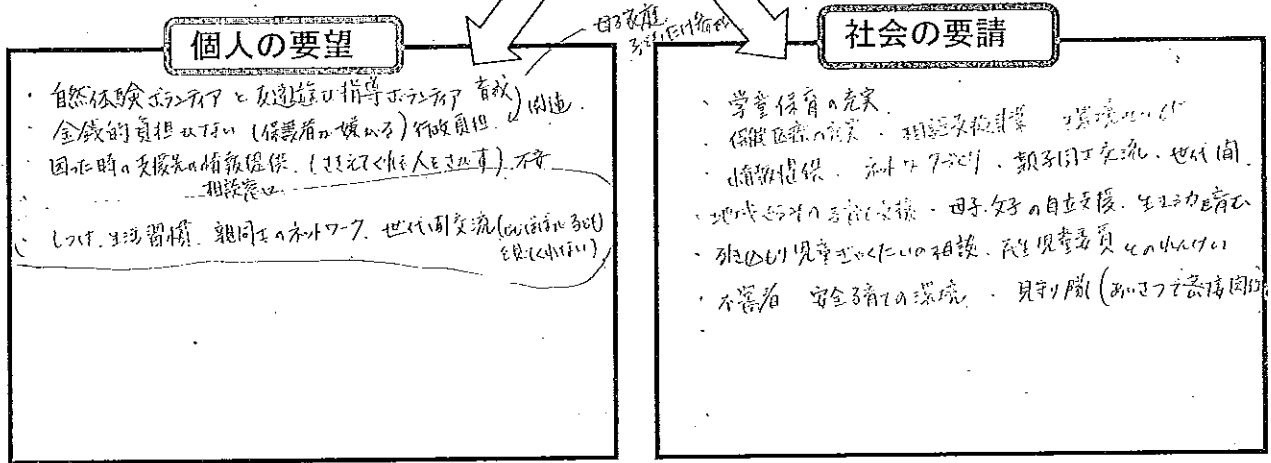 母子家庭
個人の要望
・自然体験ボランティアと友達遊び指導ボランティア 育成 関連
・金銭的負担はない(保護者が嫌がる)行政負担
・困った時の支援先の情報提供(ささえてくれる人をさがす)不安
相談窓口
・しつけ、生活習慣、親同士のネットワーク、世代間交流
社会の要請
・学童保育の充実
・保健医療の充実・相談支援事業
・情報提供・ネットワークづくり・親子同士交流・世代間
・地域 の子育て支援・母子父子の自立支援・生きる力を育む
・引きひもり児童ぎゃくたいの相談・民生児童委員とのれんけい
・不審者 安全子育ての環境・見守り隊(あいさつ